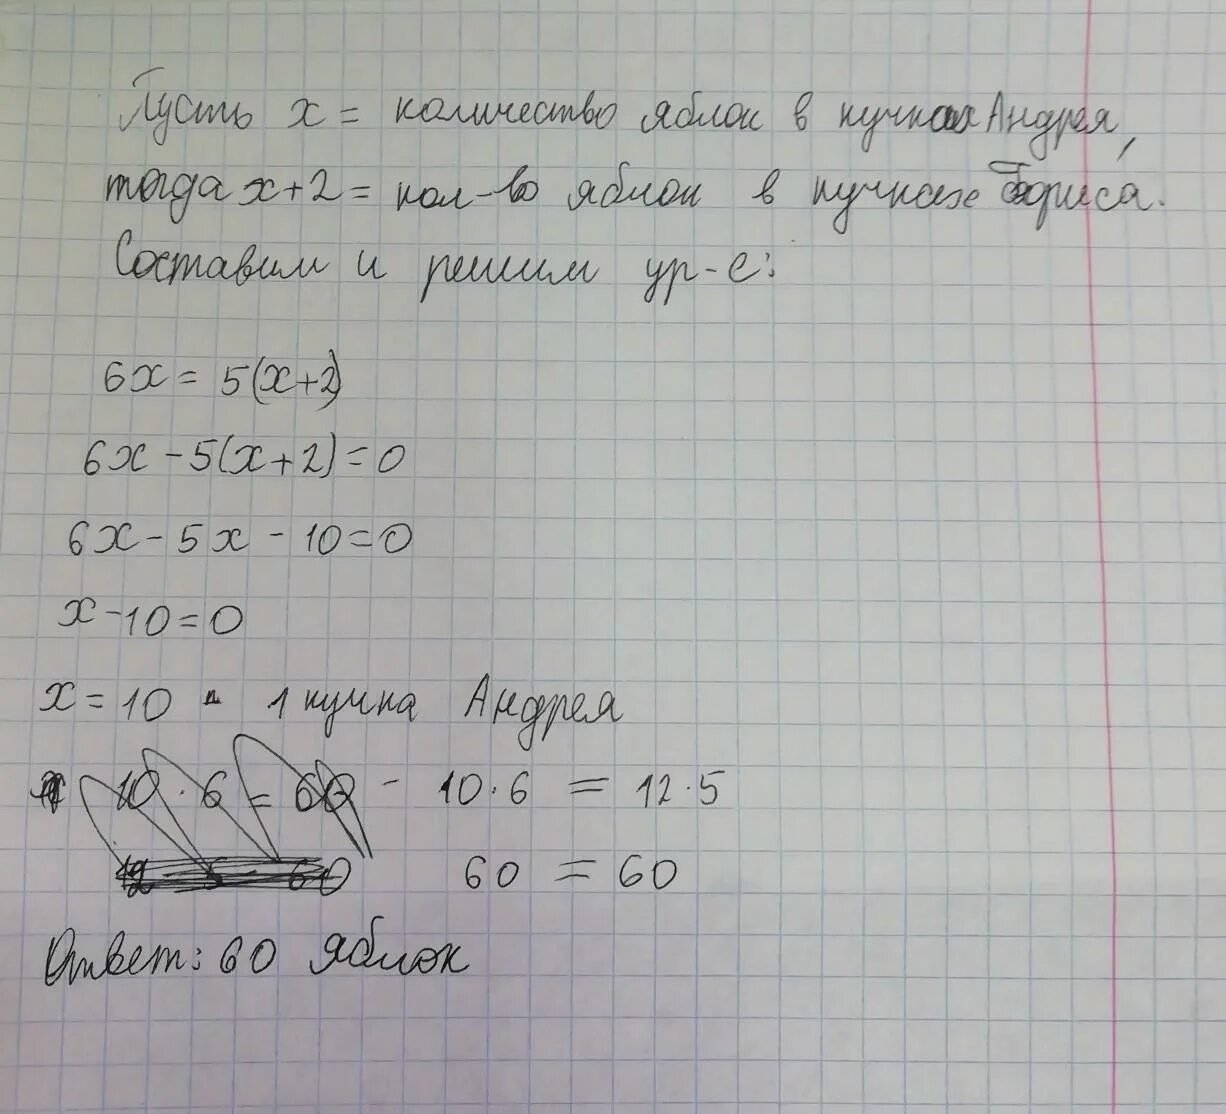 Пусть x = количество яблок в кучках Андрея,
тогда x+2 = кол-во яблок в кучках Бориса.
Составим и решим ур-е:
6x = 5(x+2)
6x - 5(x+2) = 0
6x - 5x - 10 = 0
x - 10 = 0
x = 10 - 1 кучка Андрея
10 · 6 = 60 - 10 · 6 = 12 · 5
60 = 60
Ответ: 60 яблок